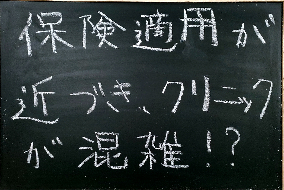 保険適用が
近づき、クリニック
が混雑!?